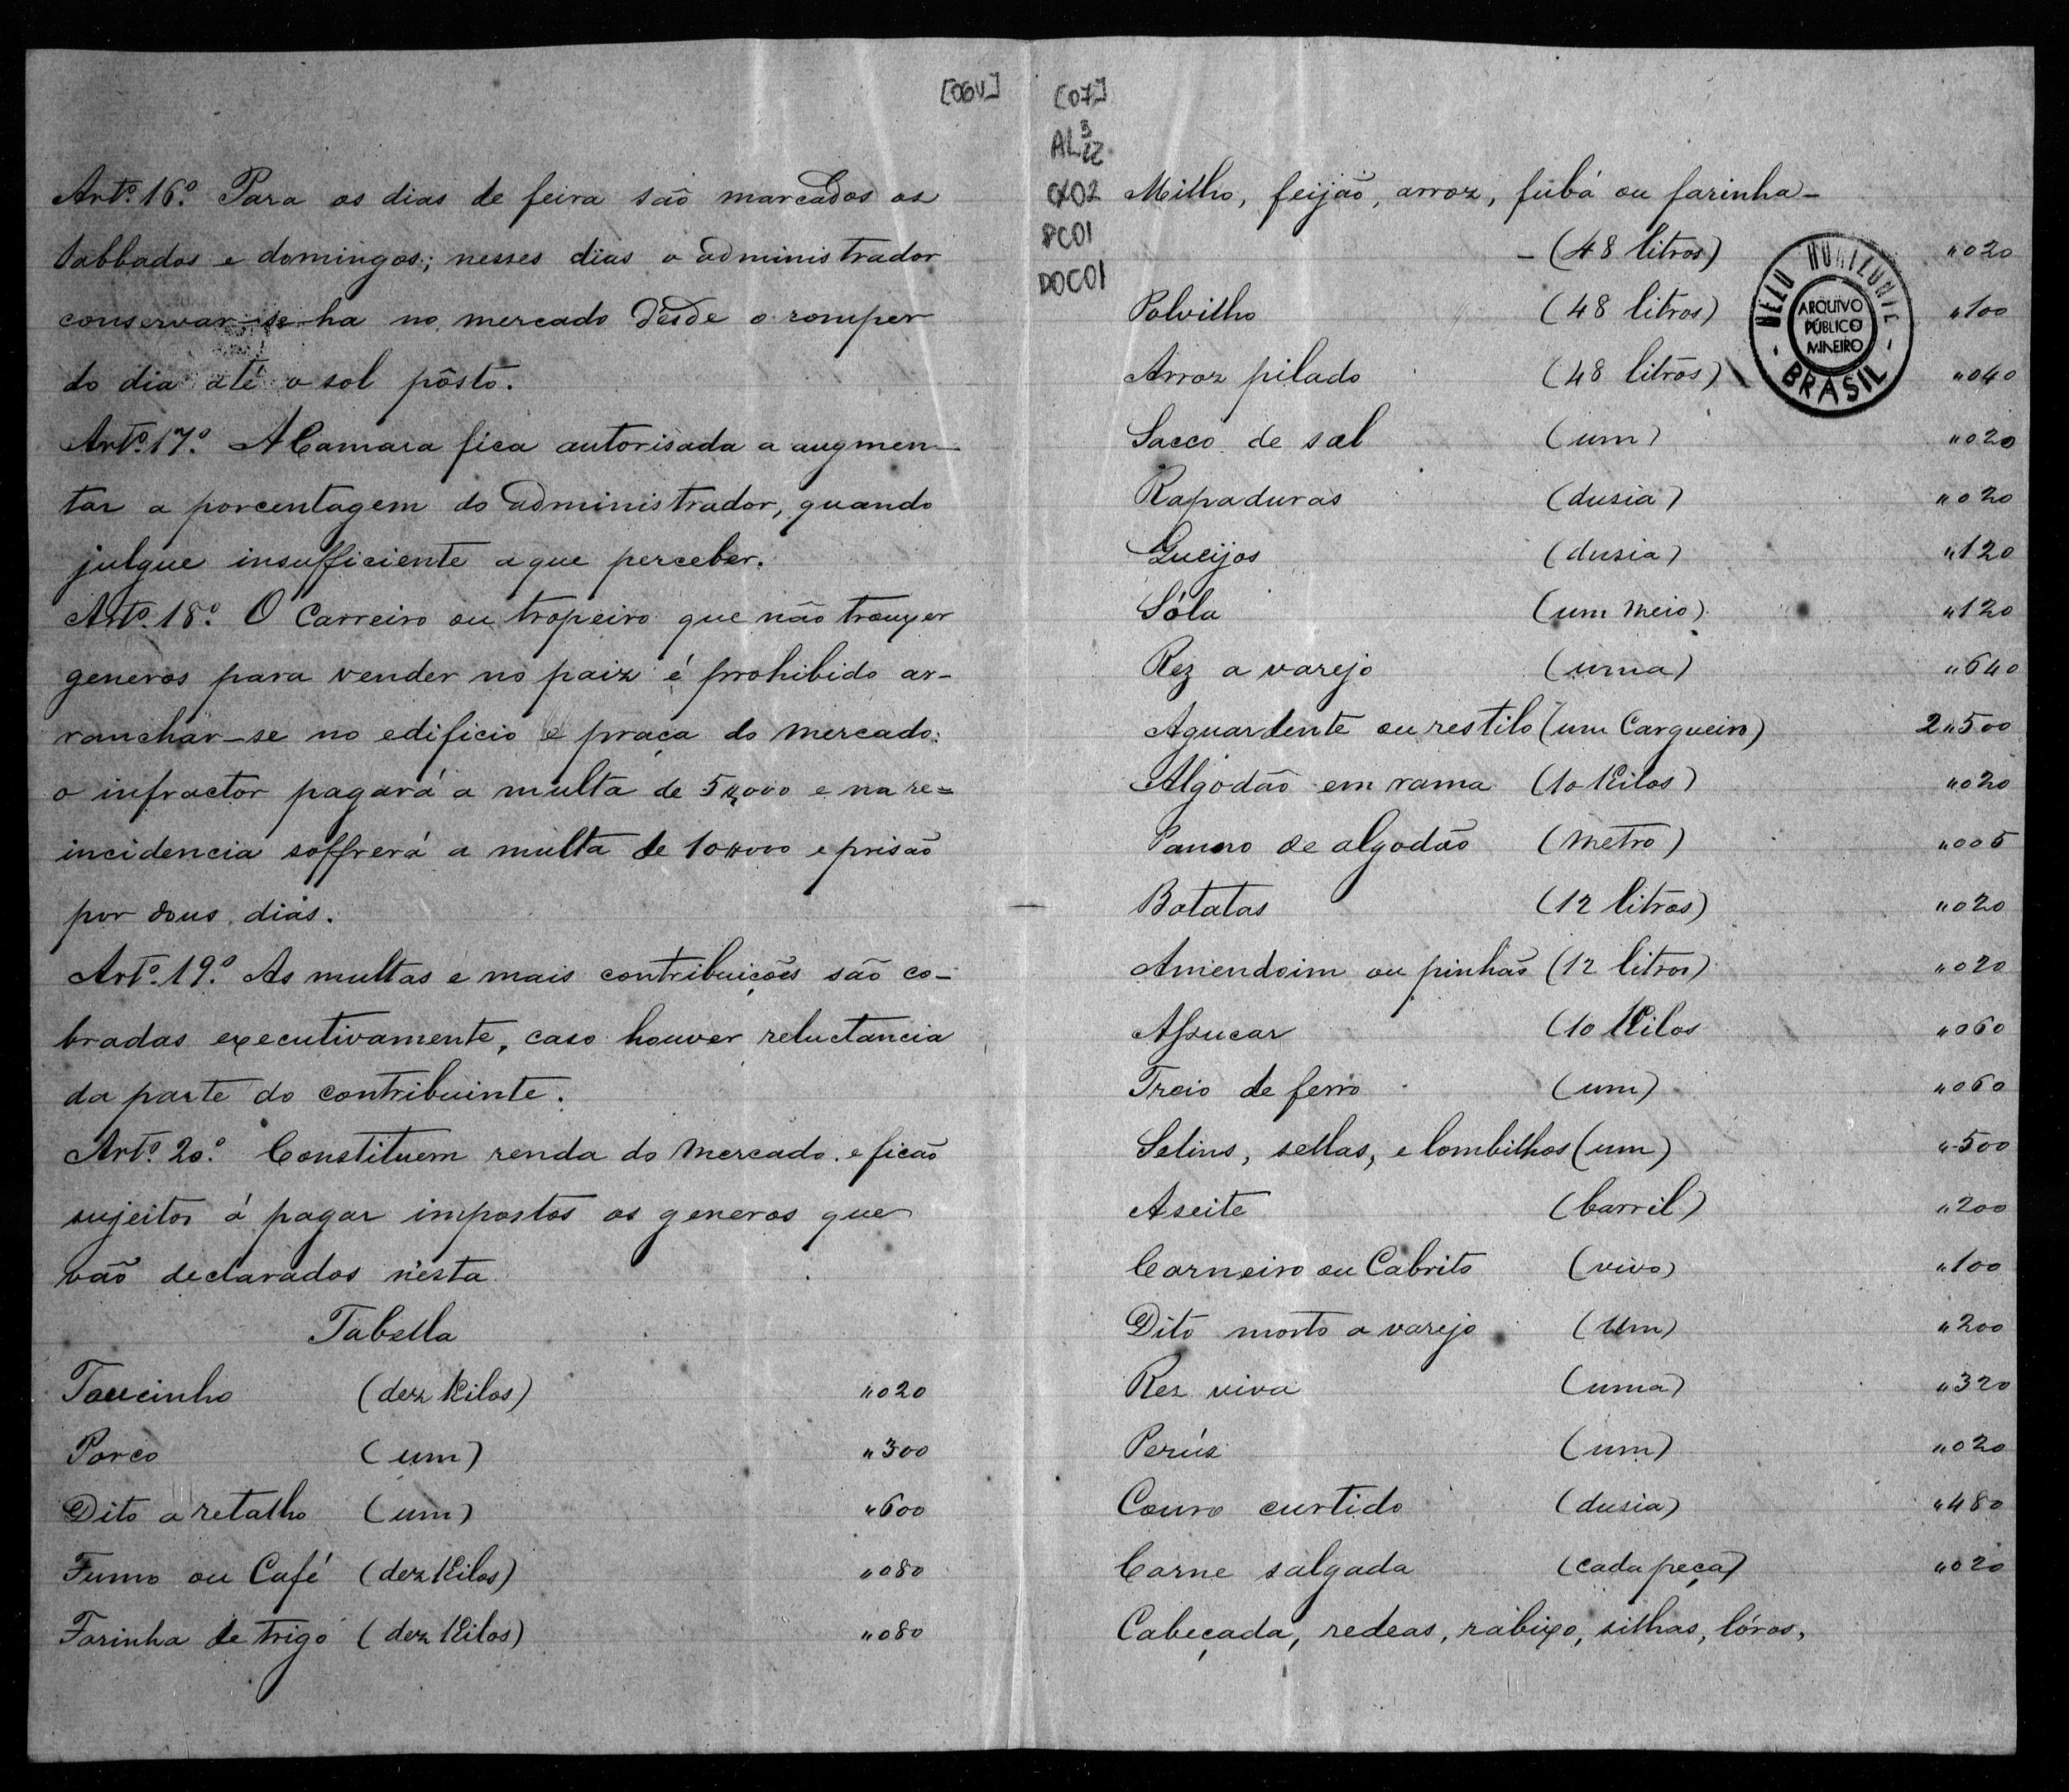 [06V]
Artº. 16º. Para os dias de feira são marcados os
sabbados e domingos; nesses dias o administrador
conservar-se-ha no mercado desde o romper
do dia até o sol pôsto.
Artº. 17º. A Camara fica autorisada a augmen-
tar a porcentagem do administrador, quando
julgue insufficiente a que perceber.
Artº. 18º. O Carreiro ou tropeiro que não trouxer
generos para vender no paiz é prohibido ar-
ranchar-se no edificio e praça do mercado:
o infractor pagará a multa de 5$000 e na re=
incidencia soffrerá a multa de 10$000 e prisão
por dous dias.
Artº. 19º. As multas e mais contribuições são co-
bradas executivamente, caso houver reluctancia
da parte do contribuinte.
Artº. 20º. Constituem renda do mercado e ficão
sujeitos á pagar impostos os generos que
vão declarados n'esta
Tabella
Toucinho (dez Kilos) "020
Porco (um) "300
Dito a retalho (um) "600
Fumo ou Café (dez Kilos) "080
Farinha de trigo (dez Kilos) "080
[07]
AL 3/22
CX02
PC01
DOC01
Milho, feijão, arroz, fubá ou farinha-
-(48 litros) "020
Polvilho (48 litros) "100
Arroz pilado (48 litros) "040
Sacco de sal (um) "020
Rapaduras (dusia) "020
Queijos (dusia) "120
Sóla (um meio) "120
Rez a varejo (uma) "640
Aguardente ou restilo (um Cargueiro) 2"500
Algodão em rama (10 Kilos) "020
Panno de algodão (metro) "005
Batatas (12 litros) "020
Amendoim ou pinhão (12 litros) "020
Assucar (10 Kilos "060
Freio de ferro (um) "060
Selins, sellas, e lombilhos (um) "500
Aseite (barril) "200
Carneiro ou Cabrito (vivo) "100
Dito morto a varejo (um) "200
Rez viva (uma) "320
Perús (um) "020
Couro curtido (dusia) "480
Carne salgada (cada peça) "020
Cabeçada, redeas, rabixo, silhas, lóros,
BELO HORIZONTE
ARQUIVO
PÚBLICO
MINEIRO
- BRASIL -